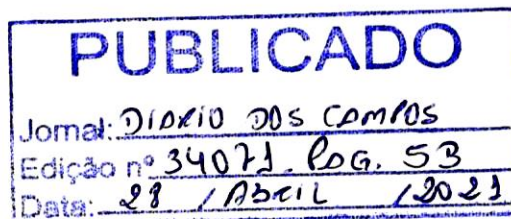 PUBLICADO
Jornal: DIÁRIO DOS CAMPOS
Edição nº 34071. PAG. 53
Data: 28 / ABRIL / 2021